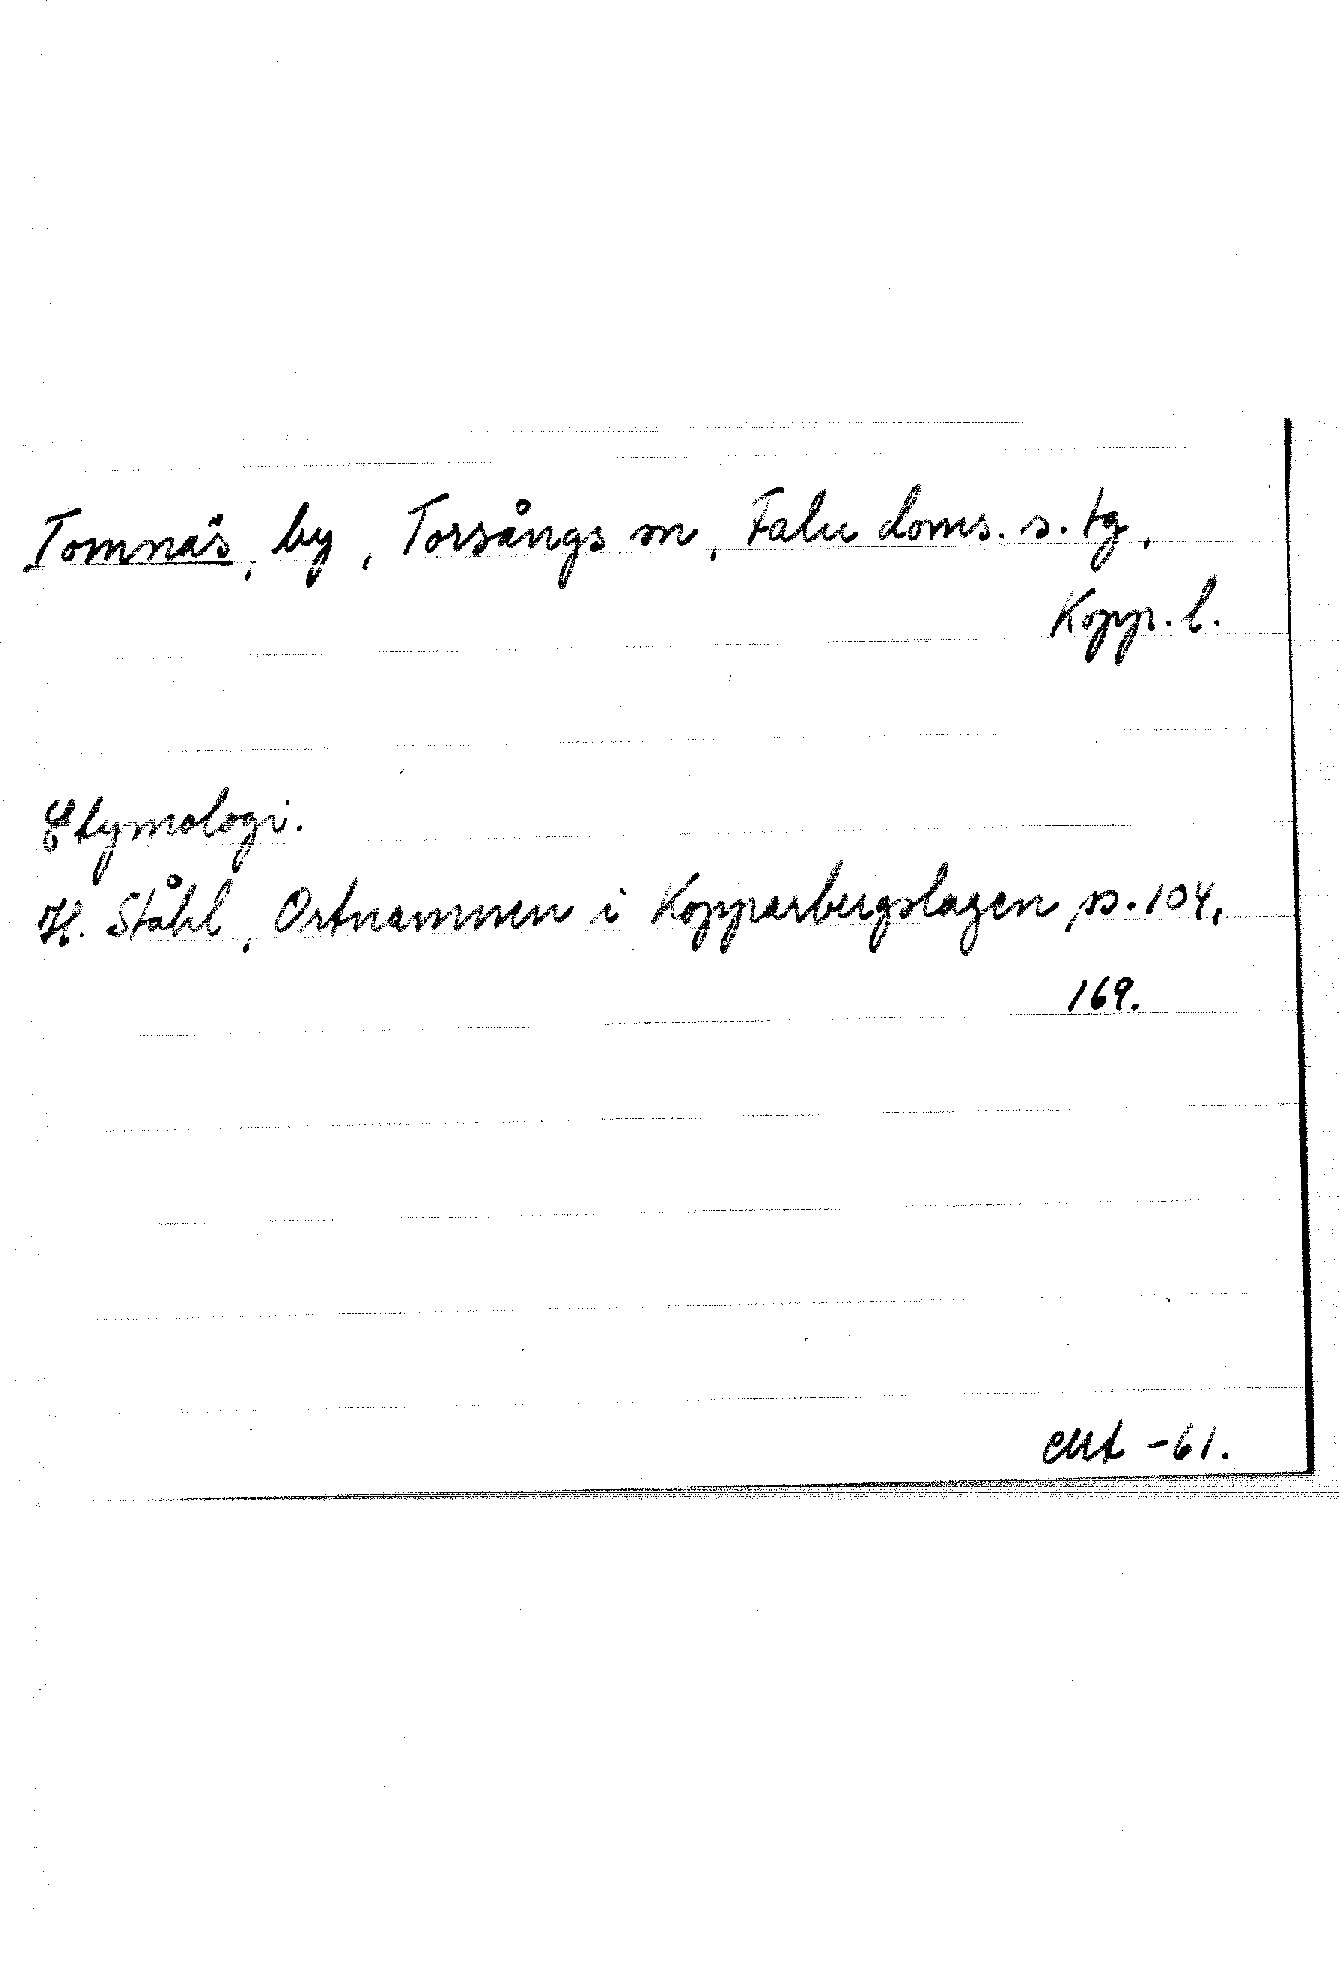 Tomnäs, by, Torsångs sn, Falu doms. s. tg,
Kopp. l.
Etymologi.
H. Ståhl, Ortnamnen i Kopparbergslagen, s. 104,
169.
-61.